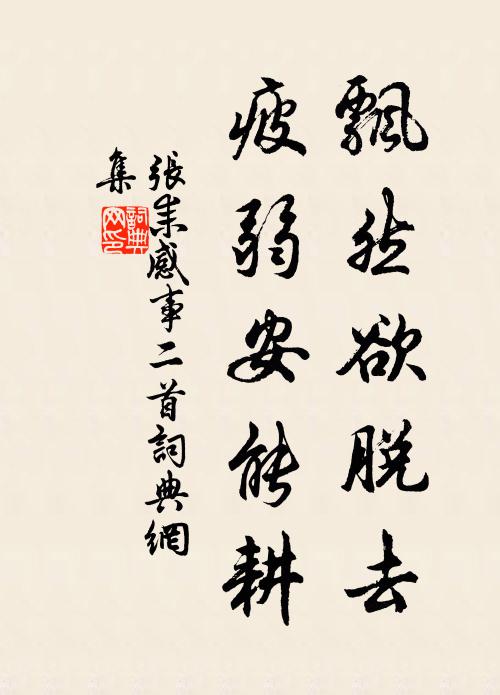 飄然欲脱去
疲弱安能耕
張耒感事二首詞典網
集
詞典
网印